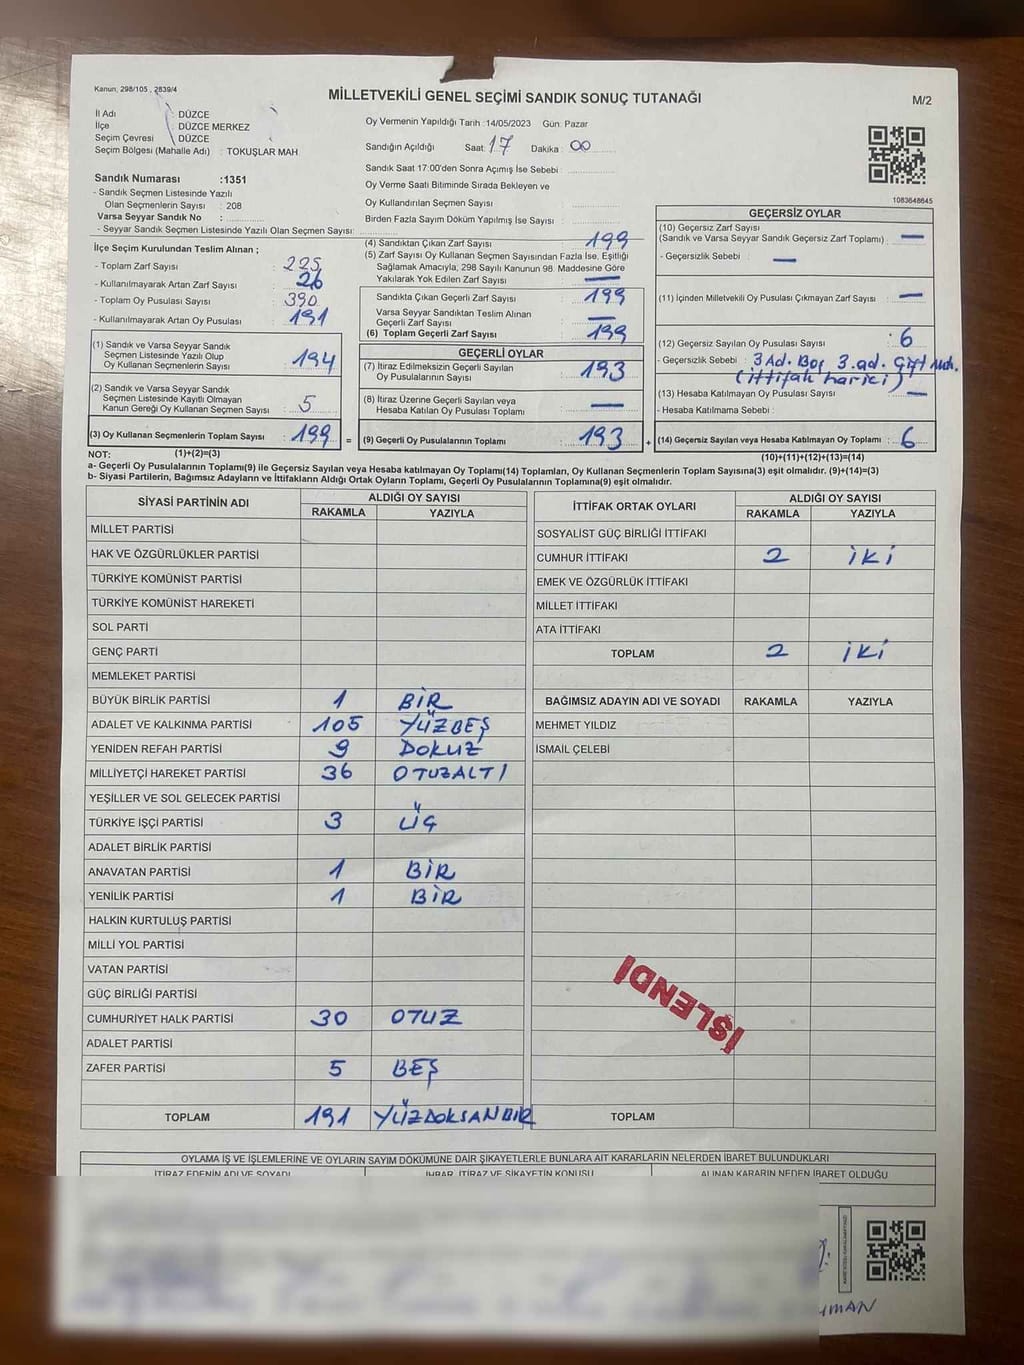 Kanun, 298/105 , 2839/4
MİLLETVEKİLİ GENEL SEÇİMİ SANDIK SONUÇ TUTANAĞI
M/2
İl Adı : DÜZCE
İlçe : DÜZCE MERKEZ
Seçim Çevresi : DÜZCE
Seçim Bölgesi (Mahalle Adı) : TOKUŞLAR MAH.
Oy Vermenin Yapıldığı Tarih :14/05/2023 Gün: Pazar
Sandığın Açıldığı Saat: 17 Dakika : 00
Sandık Saat 17:00'den Sonra Açımış İse Sebebi :
Oy Verme Saati Bitiminde Sırada Bekleyen ve
Oy Kullandırılan Seçmen Sayısı :
Birden Fazla Sayım Döküm Yapılmış İse Sayısı :
1083648645
Sandık Numarası :1351
- Sandık Seçmen Listesinde Yazılı
Olan Seçmenlerin Sayısı : 208
Varsa Seyyar Sandık No :
- Seyyar Sandık Seçmen Listesinde Yazılı Olan Seçmen Sayısı:
İlçe Seçim Kurulundan Teslim Alınan ;
- Toplam Zarf Sayısı : 225
- Kullanılmayarak Artan Zarf Sayısı : 26
- Toplam Oy Pusulası Sayısı : 390
- Kullanılmayarak Artan Oy Pusulası : 191
(1) Sandık ve Varsa Seyyar Sandık
Seçmen Listesinde Yazılı Olup
Oy Kullanan Seçmenlerin Sayısı : 194
(2) Sandık ve Varsa Seyyar Sandık
Seçmen Listesinde Kayıtlı Olmayan
Kanun Gereği Oy Kullanan Seçmen Sayısı : 5
(3) Oy Kullanan Seçmenlerin Toplam Sayısı : 199 =
(4) Sandıktan Çıkan Zarf Sayısı : 199
(5) Zarf Sayısı Oy Kullanan Seçmen Sayısından Fazla İse, Eşitliği
Sağlamak Amacıyla; 298 Sayılı Kanunun 98. Maddesine Göre
Yakılarak Yok Edilen Zarf Sayısı : —
Sandıkta Çıkan Geçerli Zarf Sayısı : 199
Varsa Seyyar Sandıktan Teslim Alınan
Geçerli Zarf Sayısı : —
(6) Toplam Geçerli Zarf Sayısı : 199
GEÇERLİ OYLAR
(7) İtiraz Edilmeksizin Geçerli Sayılan
Oy Pusulalarının Sayısı : 193
(8) İtiraz Üzerine Geçerli Sayılan veya
Hesaba Katılan Oy Pusulası Toplamı : —
(9) Geçerli Oy Pusulalarının Toplamı : 193 +
GEÇERSİZ OYLAR
(10) Geçersiz Zarf Sayısı
(Sandık ve Varsa Seyyar Sandık Geçersiz Zarf Toplamı) : —
- Geçersizlik Sebebi : —
(11) İçinden Milletvekili Oy Pusulası Çıkmayan Zarf Sayısı : —
(12) Geçersiz Sayılan Oy Pusulası Sayısı : 6
- Geçersizlik Sebebi : 3 Ad. Boş 3. ad. Çift Müh.
(ittifak harici)
(13) Hesaba Katılmayan Oy Pusulası Sayısı : —
- Hesaba Katılmama Sebebi :
(14) Geçersiz Sayılan veya Hesaba Katılmayan Oy Toplamı : 6
NOT: (1)+(2)=(3)
(10)+(11)+(12)+(13)=(14)
a- Geçerli Oy Pusulalarının Toplamı(9) ile Geçersiz Sayılan veya Hesaba katılmayan Oy Toplamı(14) Toplamları, Oy Kullanan Seçmenlerin Toplam Sayısına(3) eşit olmalıdır. (9)+(14)=(3)
b- Siyasi Partilerin, Bağımsız Adayların ve İttifakların Aldığı Ortak Oyların Toplamı, Geçerli Oy Pusulalarının Toplamına(9) eşit olmalıdır.
SİYASİ PARTİNİN ADI ALDIĞI OY SAYISI
RAKAMLA YAZIYLA
MİLLET PARTİSİ
HAK VE ÖZGÜRLÜKLER PARTİSİ
TÜRKİYE KOMÜNİST PARTİSİ
TÜRKİYE KOMÜNİST HAREKETİ
SOL PARTİ
GENÇ PARTİ
MEMLEKET PARTİSİ
BÜYÜK BİRLİK PARTİSİ 1 BİR
ADALET VE KALKINMA PARTİSİ 105 YÜZBEŞ
YENİDEN REFAH PARTİSİ 9 DOKUZ
MİLLİYETÇİ HAREKET PARTİSİ 36 OTUZALTI
YEŞİLLER VE SOL GELECEK PARTİSİ
TÜRKİYE İŞÇİ PARTİSİ 3 ÜÇ
ADALET BİRLİK PARTİSİ
ANAVATAN PARTİSİ 1 BİR
YENİLİK PARTİSİ 1 BİR
HALKIN KURTULUŞ PARTİSİ
MİLLİ YOL PARTİSİ
VATAN PARTİSİ
GÜÇ BİRLİĞİ PARTİSİ
CUMHURİYET HALK PARTİSİ 30 OTUZ
ADALET PARTİSİ
ZAFER PARTİSİ 5 BEŞ
TOPLAM 191 YÜZDOKSANBİR
İTTİFAK ORTAK OYLARI ALDIĞI OY SAYISI
RAKAMLA YAZIYLA
SOSYALİST GÜÇ BİRLİĞİ İTTİFAKI
CUMHUR İTTİFAKI 2 İKİ
EMEK VE ÖZGÜRLÜK İTTİFAKI
MİLLET İTTİFAKI
ATA İTTİFAKI
TOPLAM 2 İKİ
BAĞIMSIZ ADAYIN ADI VE SOYADI RAKAMLA YAZIYLA
MEHMET YILDIZ
İSMAİL ÇELEBİ
İŞLENDİ
TOPLAM
OYLAMA İŞ VE İŞLEMLERİNE VE OYLARIN SAYIM DÖKÜMÜNE DAİR ŞİKAYETLERLE BUNLARA AİT KARARLARIN NELERDEN İBARET BULUNDUKLARI
İTİRAZ EDENİN ADI VE SOYADI İHBAR, İTİRAZ VE ŞİKAYETİN KONUSU ALINAN KARARIN NEDEN İBARET OLDUĞU